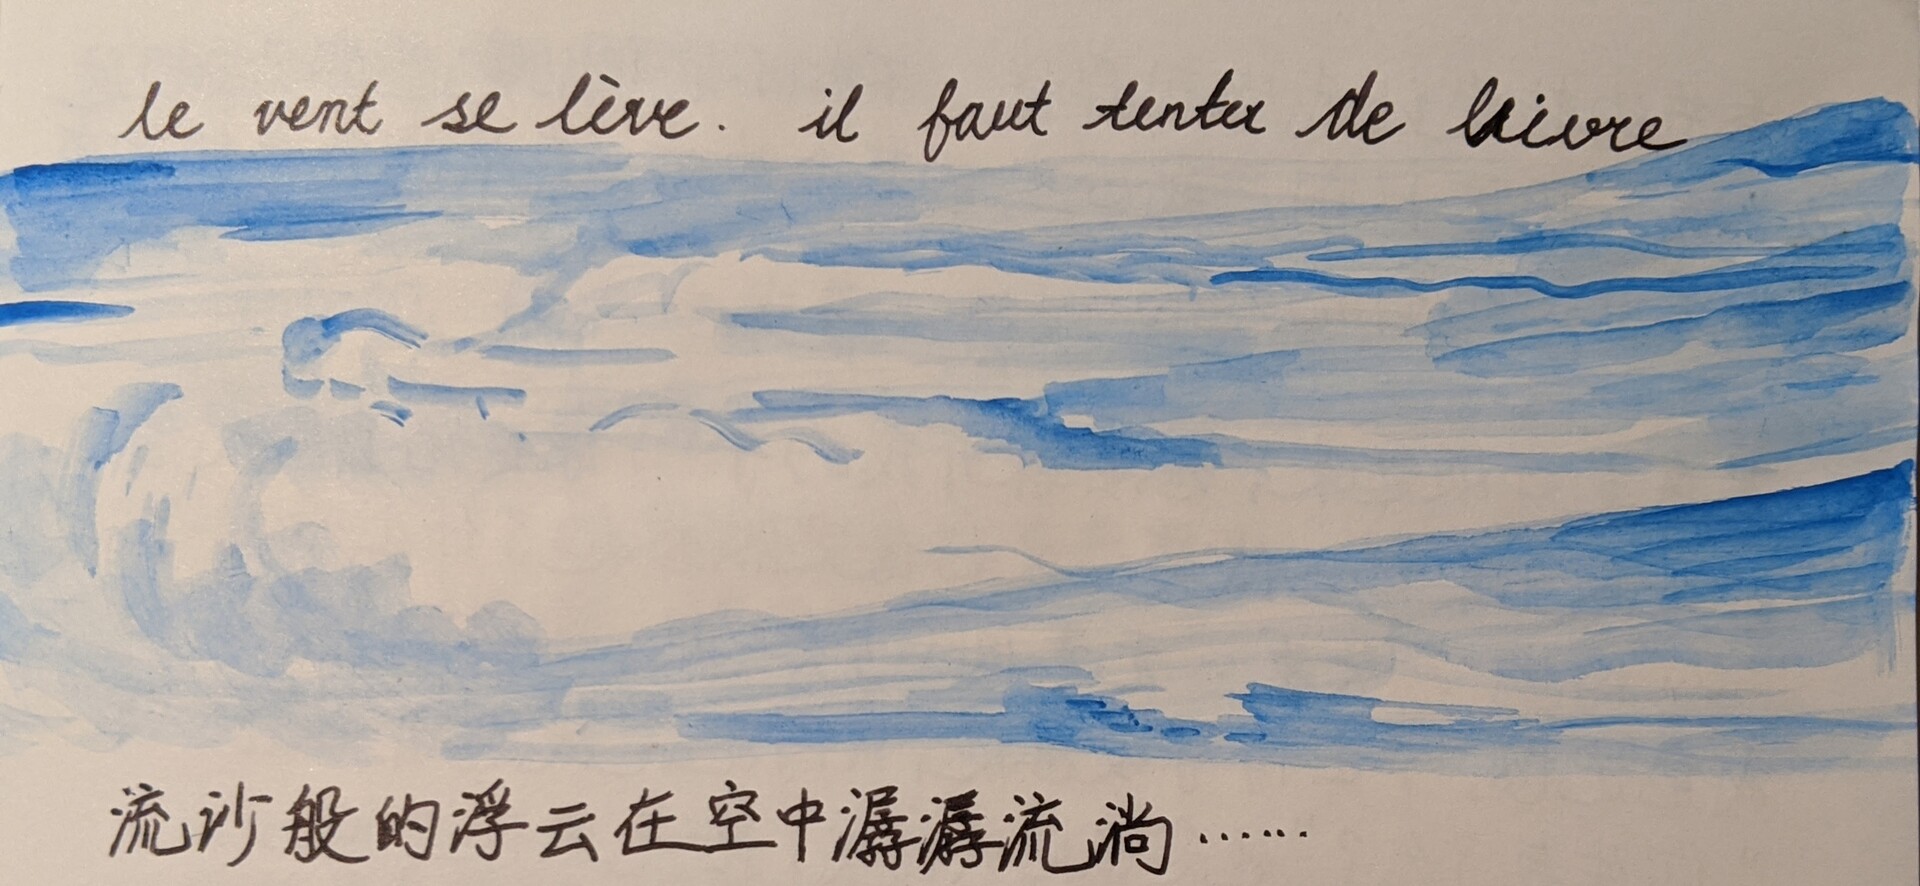 le vent se lève. il faut tenter de vivre
流沙般的浮云在空中潺潺流淌……